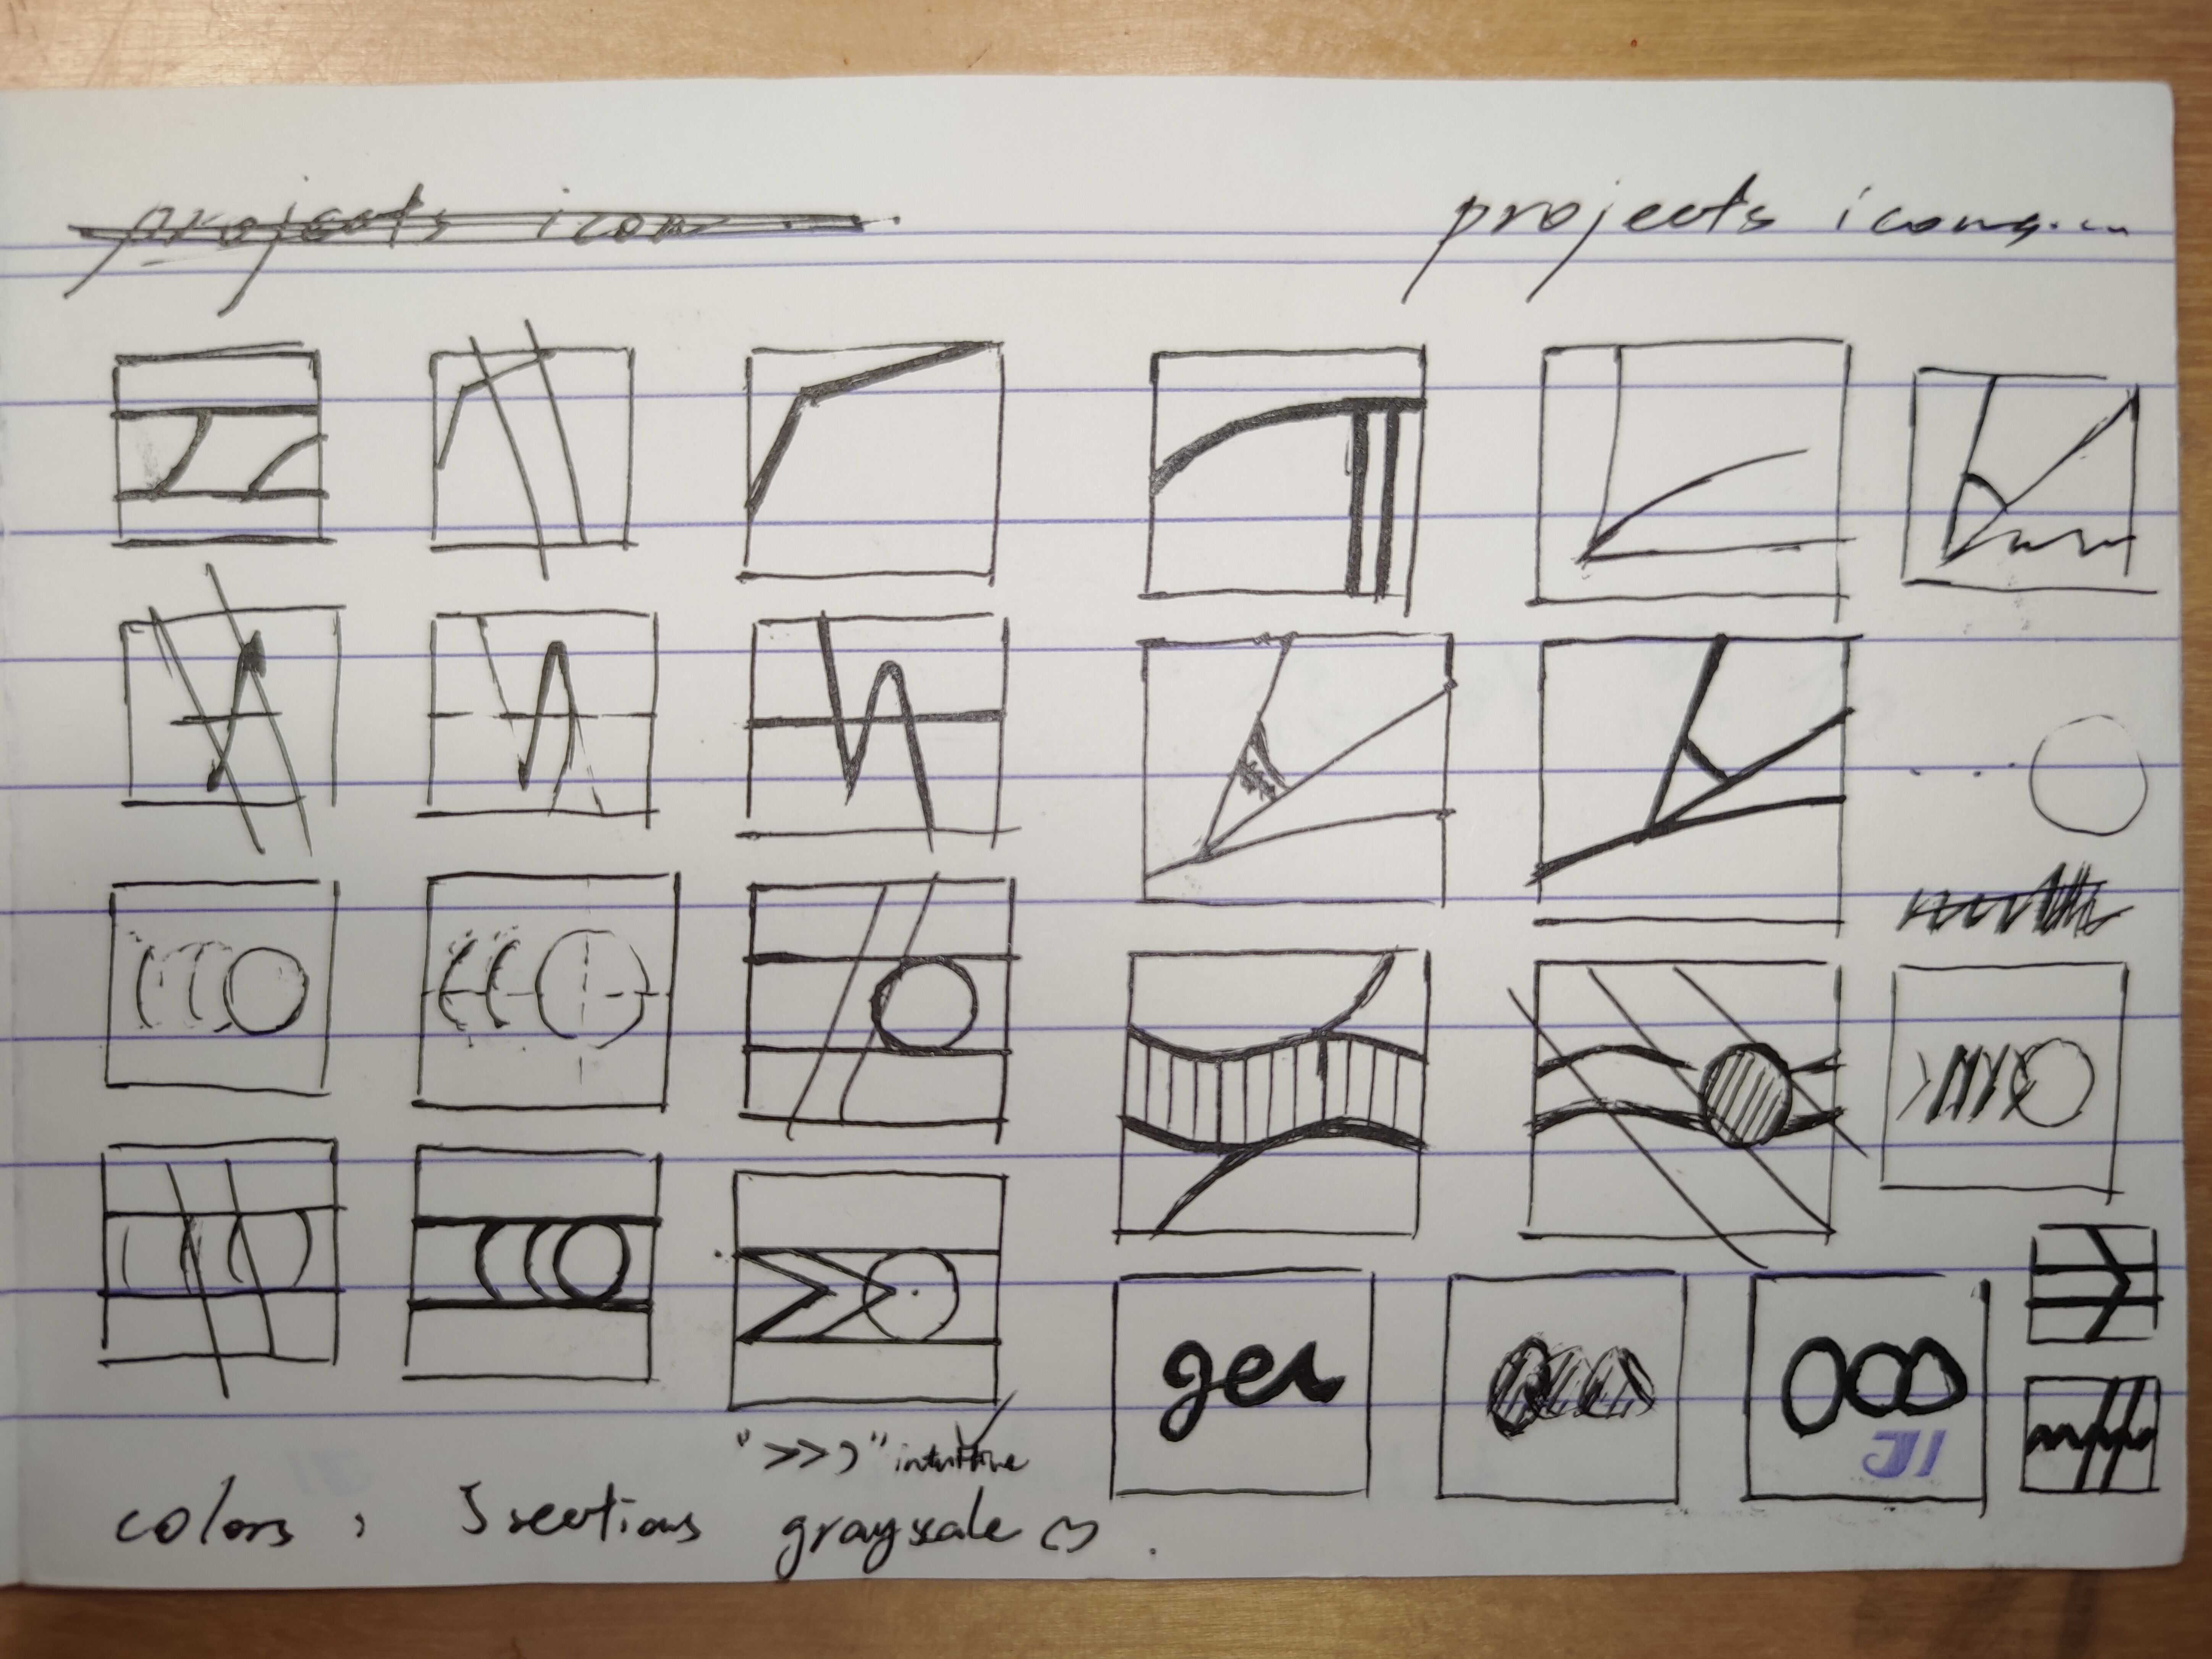 projects icon
projects icons...
ger
">>>" intuitive
colors : 5 sections grayscale